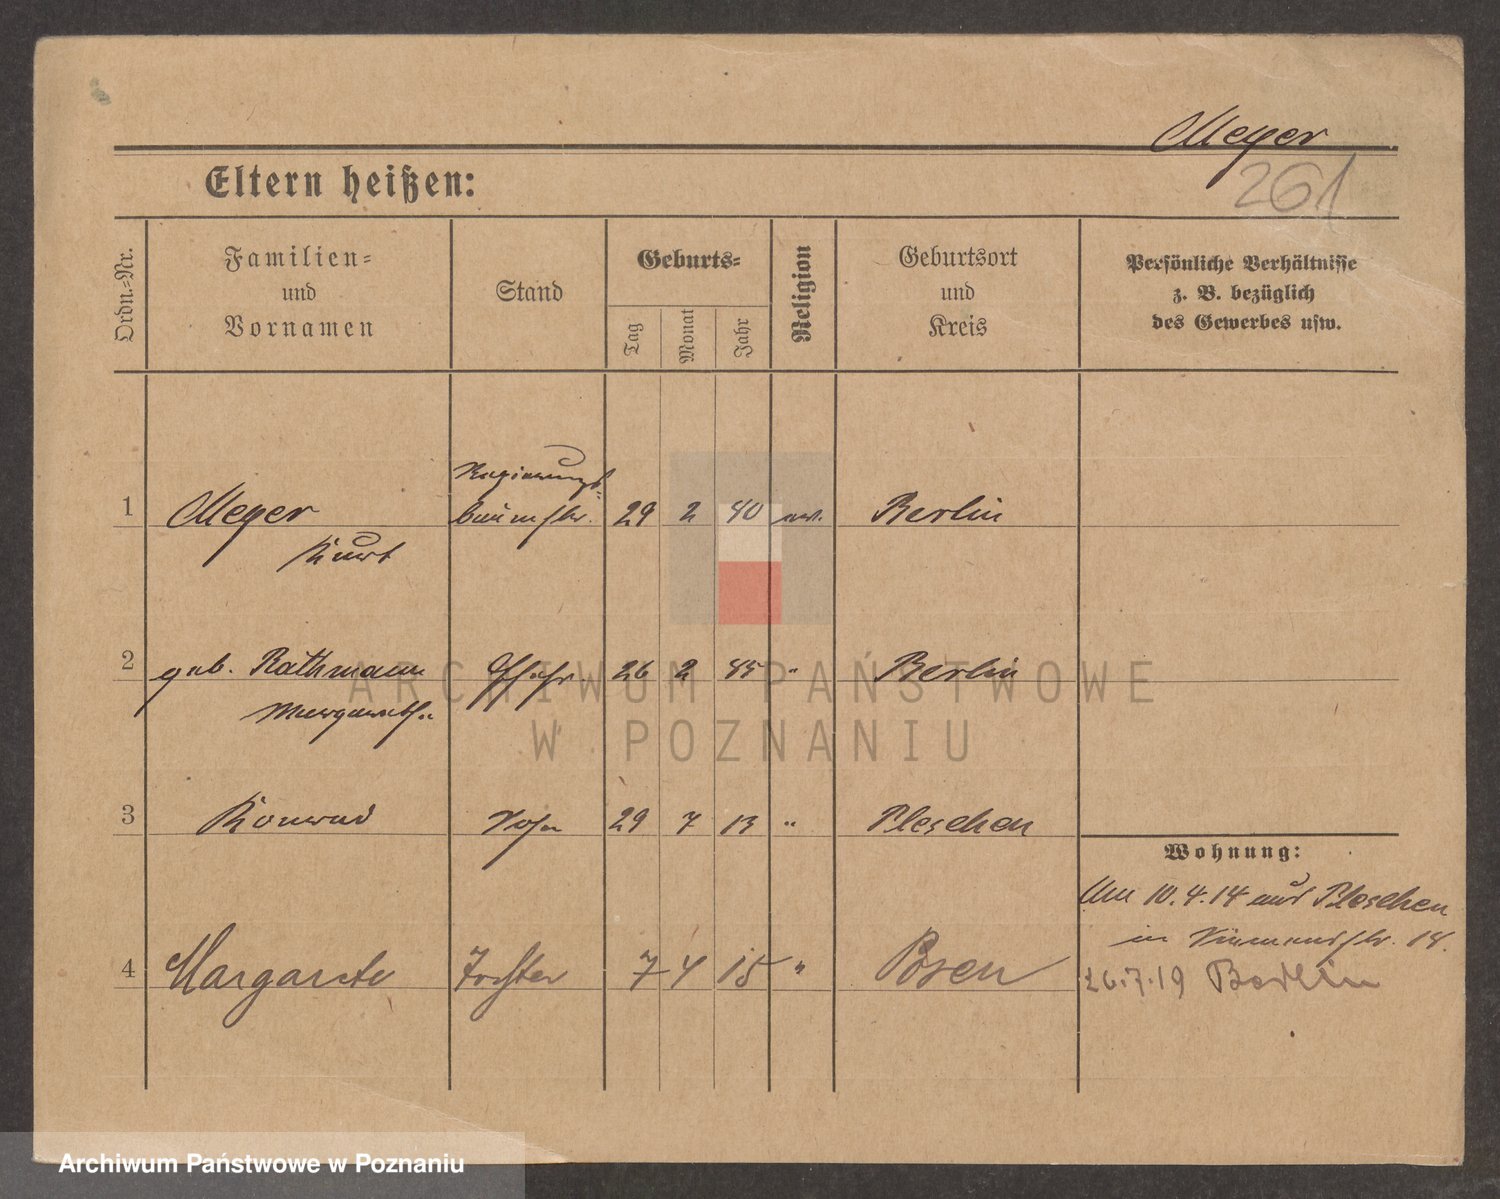 Meyer
261
Eltern heißen:
Ordn.-Nr.
Familien-
und
Vornamen
Stand
Geburts-
Tag
Monat
Jahr
Religion
Geburtsort
und
Kreis
Persönliche Verhältnisse
z. B. bezüglich
des Gewerbes usw.
Regierungs-
1 Meyer baumstr. 29 2 80 ev. Berlin
Kurt
2 geb. Rathmann Ehefr 26 2 85 " Berlin
Margarethe
3 Konrad Sohn 29 7 13 " Pleschen
Wohnung:
Am 10.4.14 aus Pleschen
in 14.
4 Margarete Tochter 7 4 15 " Posen
26.7.19 Berlin
ARCHIWUM PAŃSTWOWE
W POZNANIU
Archiwum Państwowe w Poznaniu